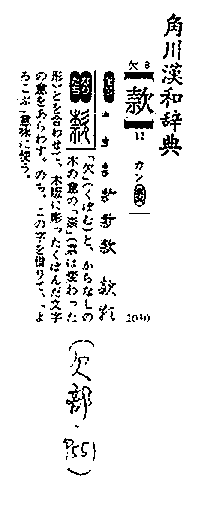 角川漢和辞典
欠 8
【款】
12
カン
2030
「欠」(くぼむ)と、からなしの
木の意の「柰」(示は変わった
形)とを合わせて、木版に彫ったくぼんだ文字
の意をあらわす。のち、この字を借りて、「よ
ろこぶ」意味に使う。
(欠部・P551)